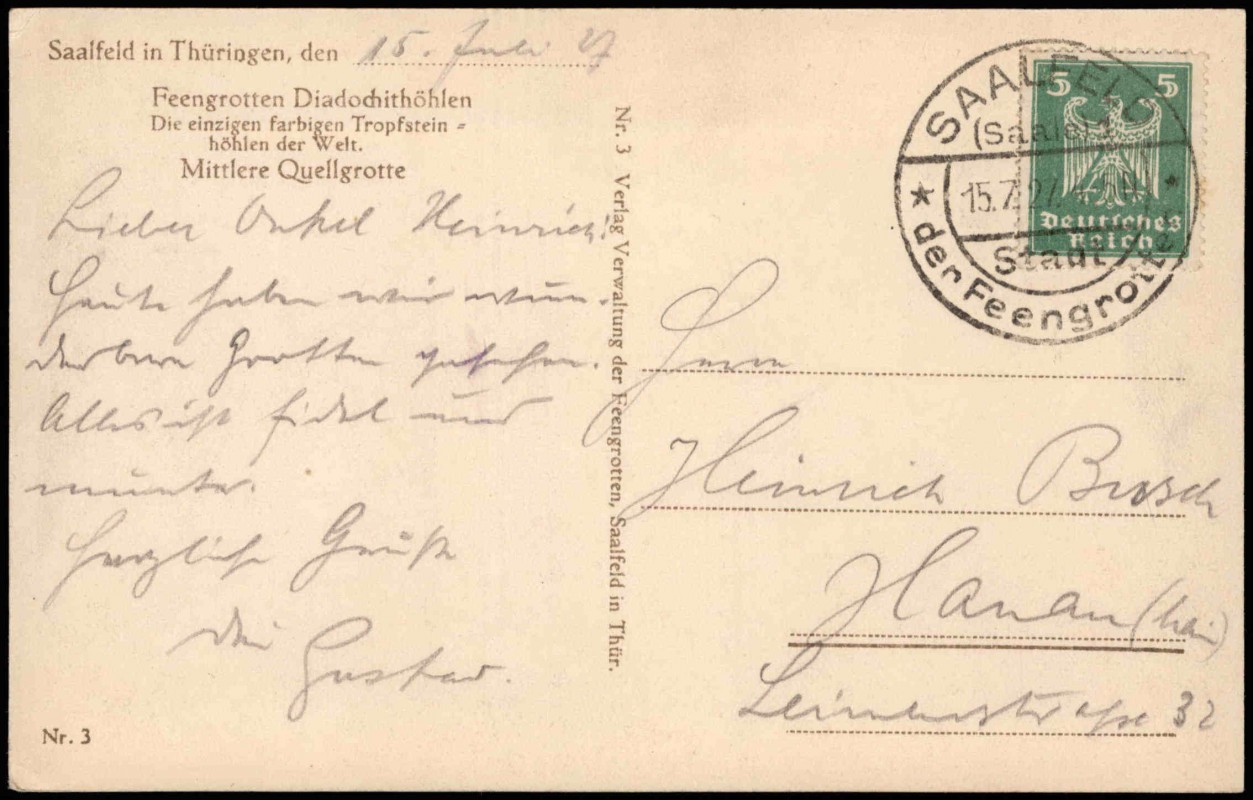 Saalfeld in Thüringen, den 15. Juli 27
Feengrotten Diadochithöhlen
Die einzigen farbigen Tropfstein =
höhlen der Welt.
Mittlere Quellgrotte
Lieber Onkel Heinrich!
Heute haben wir wun-
derbare Grotten gesehen.
Alles ist fidel und
munter.
Herzliche Grüße
Dein
Gustav.
Nr. 3
Nr. 3 Verlag Verwaltung der Feengrotten, Saalfeld in Thür.
SAALFELD
(Saale)
15.7.27
Stadt
der Feengrotten
5 5
Deutsches
Reich
Herrn
Heinrich Busch
Hanau (Main)
32